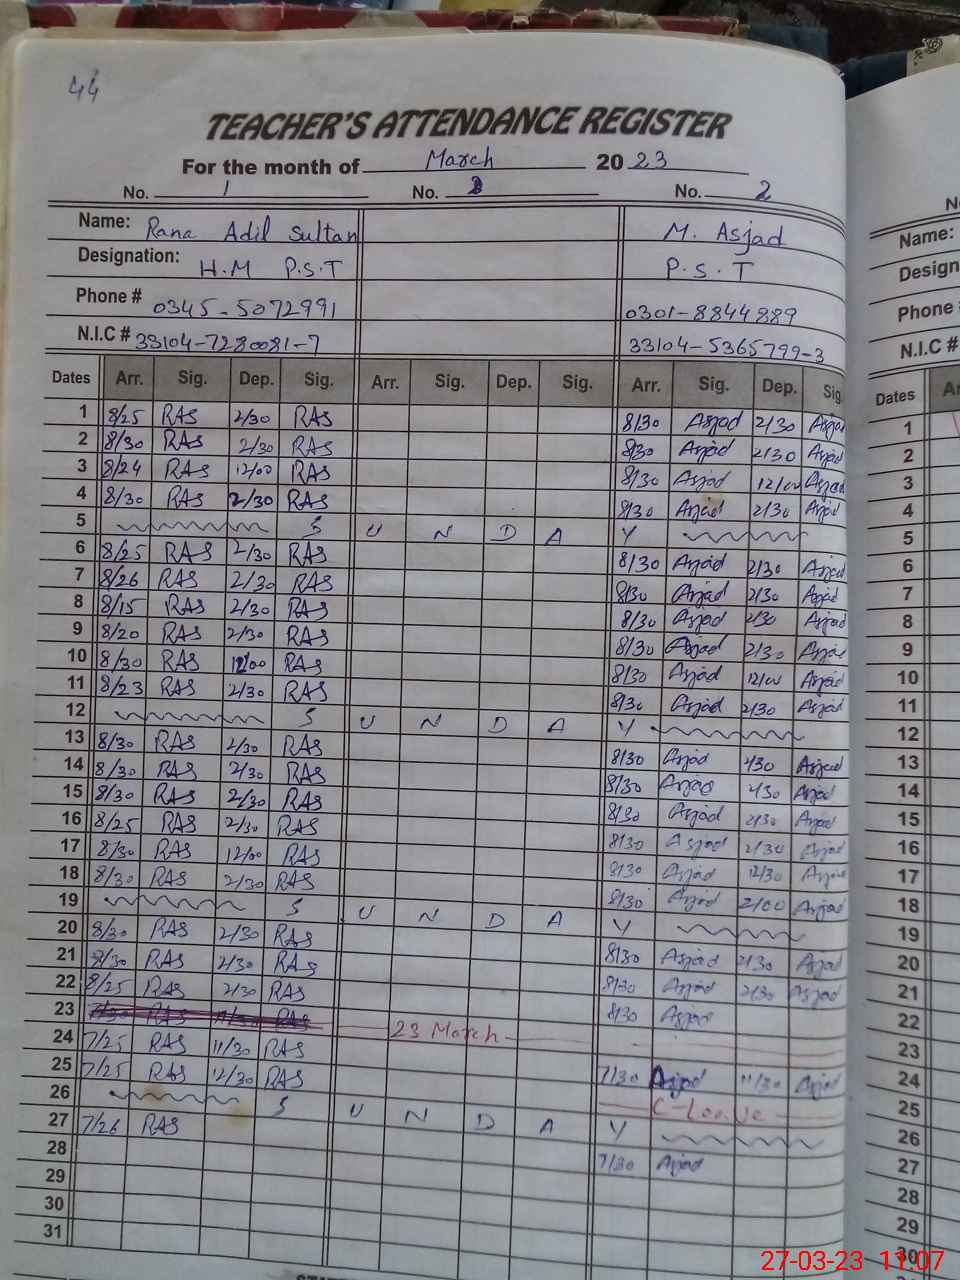 44
TEACHER'S ATTENDANCE REGISTER
For the month of March 20 23
No. 1 No. No. 2
Name: Rana Adil Sultan M. Asjad
Designation: H.M P.S.T P.S.T
Phone # 0345-5072991 0301-8844889
N.I.C # 33104-7280081-7 33104-5365799-3
Dates Arr. Sig. Dep. Sig. Arr. Sig. Dep. Sig. Arr. Sig. Dep. Sig.
1 8/25 RAS 2/30 RAS 8/30 Asjad 2/30 Asjad
2 8/30 RAS 2/30 RAS 8/30 Asjad 2/30 Asjad
3 8/24 RAS 12/00 RAS 8/30 Asjad 12/00 Asjad
4 8/30 RAS 2/30 RAS 8/30 Asjad 2/30 Asjad
5 S U N D A Y
6 8/25 RAS 2/30 RAS 8/30 Asjad 2/30 Asjad
7 8/26 RAS 2/30 RAS 8/30 Asjad 2/30 Asjad
8 8/15 RAS 2/30 RAS 8/30 Asjad 2/30 Asjad
9 8/20 RAS 2/30 RAS 8/30 Asjad 2/30 Asjad
10 8/30 RAS 12/00 RAS 8/30 Asjad 12/00 Asjad
11 8/23 RAS 2/30 RAS 8/30 Asjad 2/30 Asjad
12 S U N D A Y
13 8/30 RAS 2/30 RAS 8/30 Asjad 2/30 Asjad
14 8/30 RAS 2/30 RAS 8/30 Asjad 2/30 Asjad
15 8/30 RAS 2/30 RAS 8/30 Asjad 2/30 Asjad
16 8/25 RAS 2/30 RAS 8/30 Asjad 2/30 Asjad
17 8/30 RAS 12/00 RAS 8/30 Asjad 12/30 Asjad
18 8/30 RAS 2/30 RAS 8/30 Asjad 2/00 Asjad
19 S U N D A Y
20 8/30 RAS 2/30 RAS 8/30 Asjad 2/30 Asjad
21 8/30 RAS 2/30 RAS 8/30 Asjad 2/30 Asjad
22 8/25 RAS 2/30 RAS 8/30 Asjad
23 7/30 RAS 11/30 RAS 23 March
24 7/25 RAS 11/30 RAS 7/30 Asjad 11/30 Asjad
25 7/25 RAS 12/30 RAS C-Leave
26 S U N D A Y
27 7/26 RAS 7/30 Asjad
28
29
30
31
No
Name:
Design
Phone
N.I.C #
Dates
1
2
3
4
5
6
7
8
9
10
11
12
13
14
15
16
17
18
19
20
21
22
23
24
25
26
27
28
29
30
27-03-23 11:07